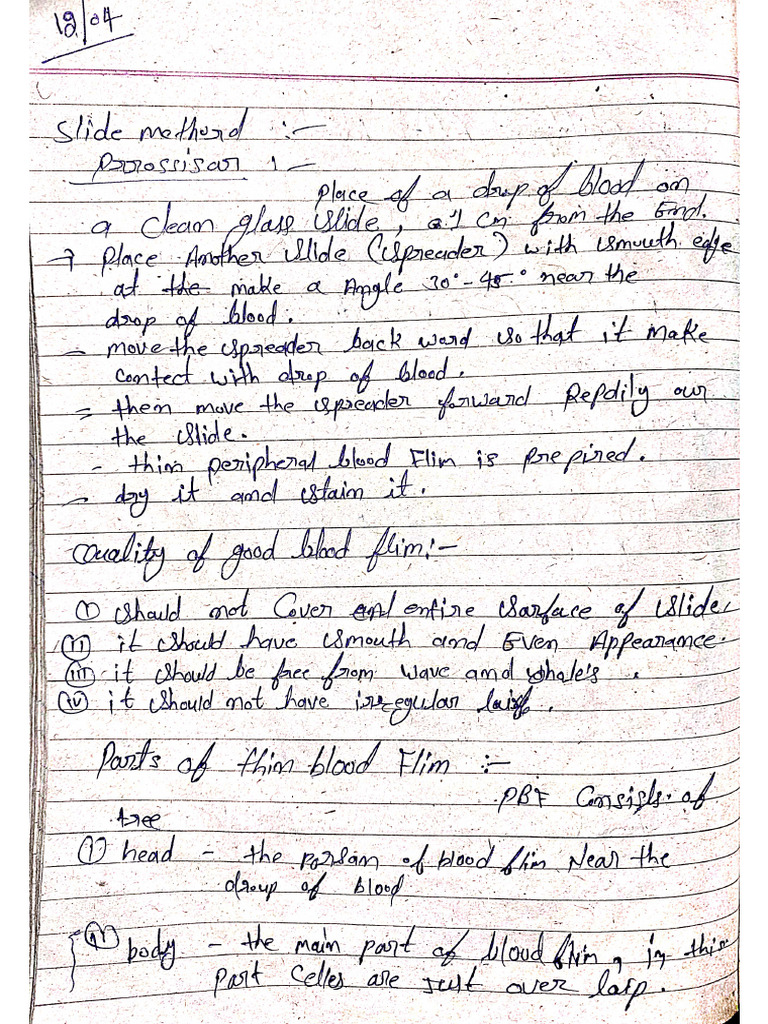 12/04
Slide methord :-
Prorossisor :-
Place of a drop of blood on
a clean glass slide, at 1 cm from the End.
→ Place Another slide (spreader) with smouth edge
at the make a Angle 30°-45° near the
drop of blood.
- move the spreader back word so that it make
contect with drop of blood.
= them move the spreader forward Repdily our
the slide.
- thim peripheral blood Flim is prepired.
- dry it and stain it.
Quality of good blood flim:-
(i) should not Cover entire sarface of slide.
(ii) it should have smouth and Even Appearance.
(iii) it should be free from wave and whale's.
(iv) it should not have irregular
Parts of thim blood Flim :-
PBF Consists of
tree
(i) head - the of blood flim Near the
droup of blood
(ii) body - the main part of blood flim, in this
part Celles are just over lap.